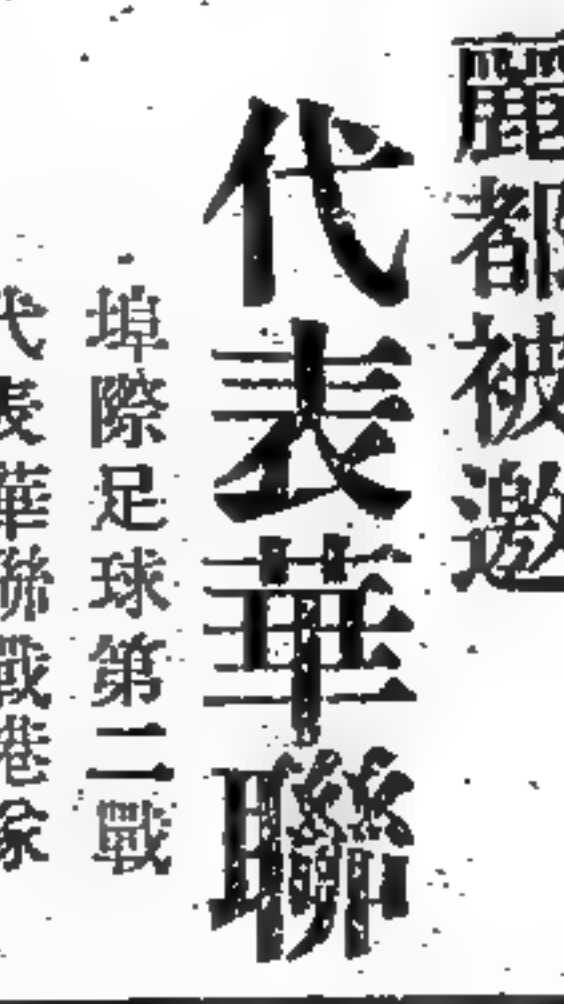 麗都被邀
代表華聯
埠際足球第二戰
代表華聯戰港